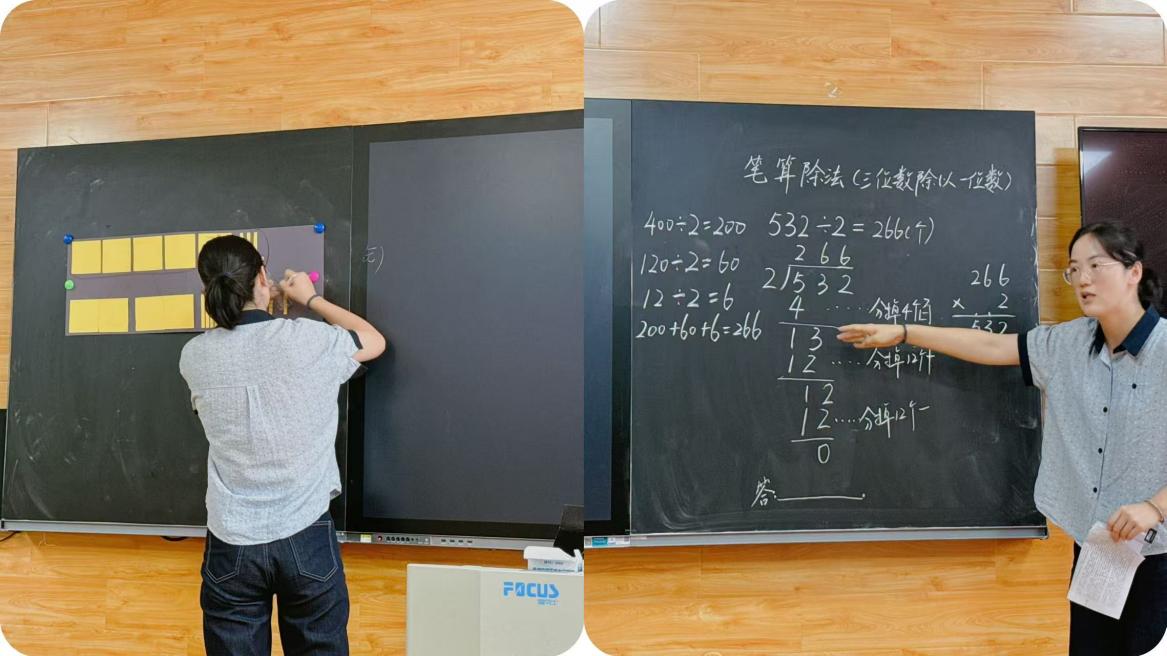 元)
FOCUS
2
笔算除法(三位数除以一位数)
400÷2=200
120÷2=60
12÷2=6
200+60+6=266
532÷2=266(个)
266
2)532
4 ····分掉4个百
13
12 ····分掉12个十
12
12 ····分掉12个一
0
答:
266
× 2
532